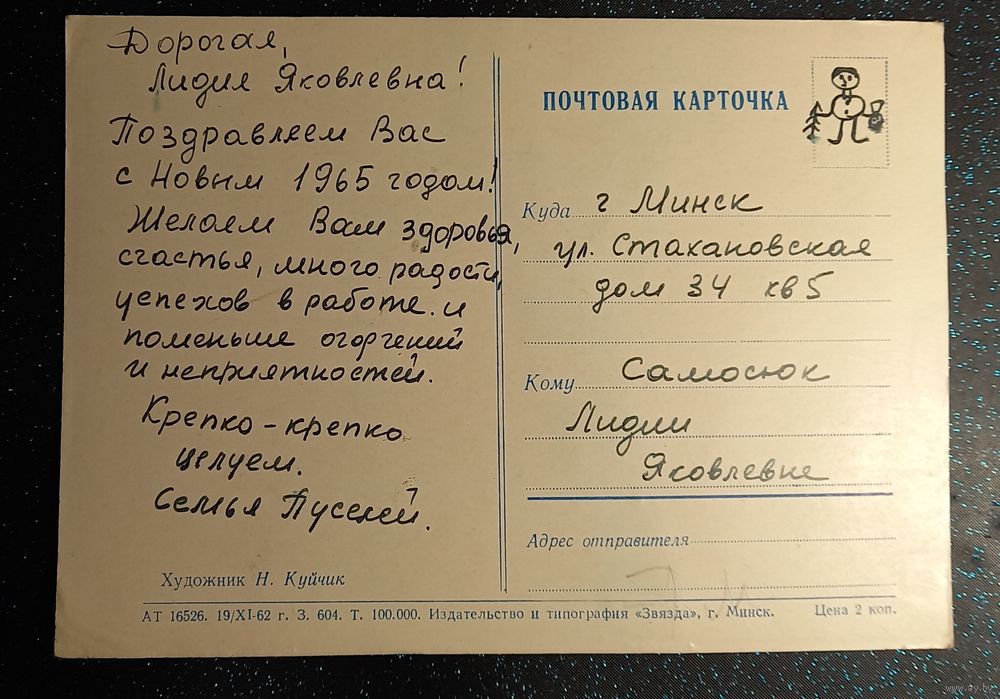 Дорогая,
Лидия Яковлевна!
Поздравляем Вас
с Новым 1965 годом!
Желаем Вам здоровья,
счастья, много радости,
успехов в работе и
поменьше огорчений
и неприятностей.
Крепко-крепко
целуем.
Семья Пуселей.
Художник Н. Куйчик
ПОЧТОВАЯ КАРТОЧКА
Куда г Минск
ул. Стахановская
дом 34 кв 5
Кому Самосюк
Лидии
Яковлевне
Адрес отправителя
АТ 16526. 19/XI-62 г. З. 604. Т. 100.000. Издательство и типография «Звязда», г. Минск. Цена 2 коп.
www.ay.by